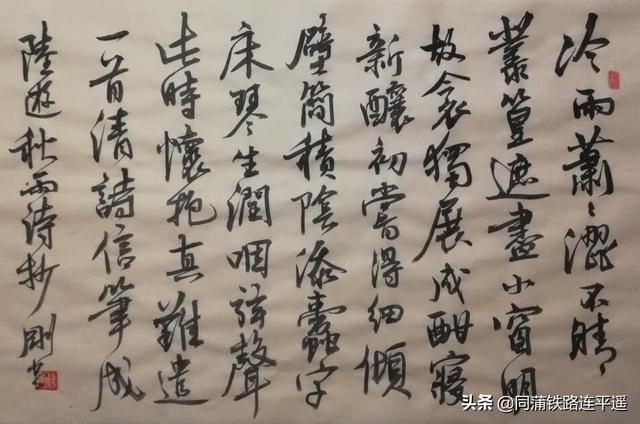 冷雨蕭〻澀不晴
叢篁遮盡小窗明
故衾獨展成酣寢
新釀初嘗得細傾
壁簡積陰添蠹字
床琴生潤咽弦聲
此時懷抱真難遣
一首清詩信筆成
陸遊秋雨詩抄 剛书
头条 @同蒲铁路连平遥